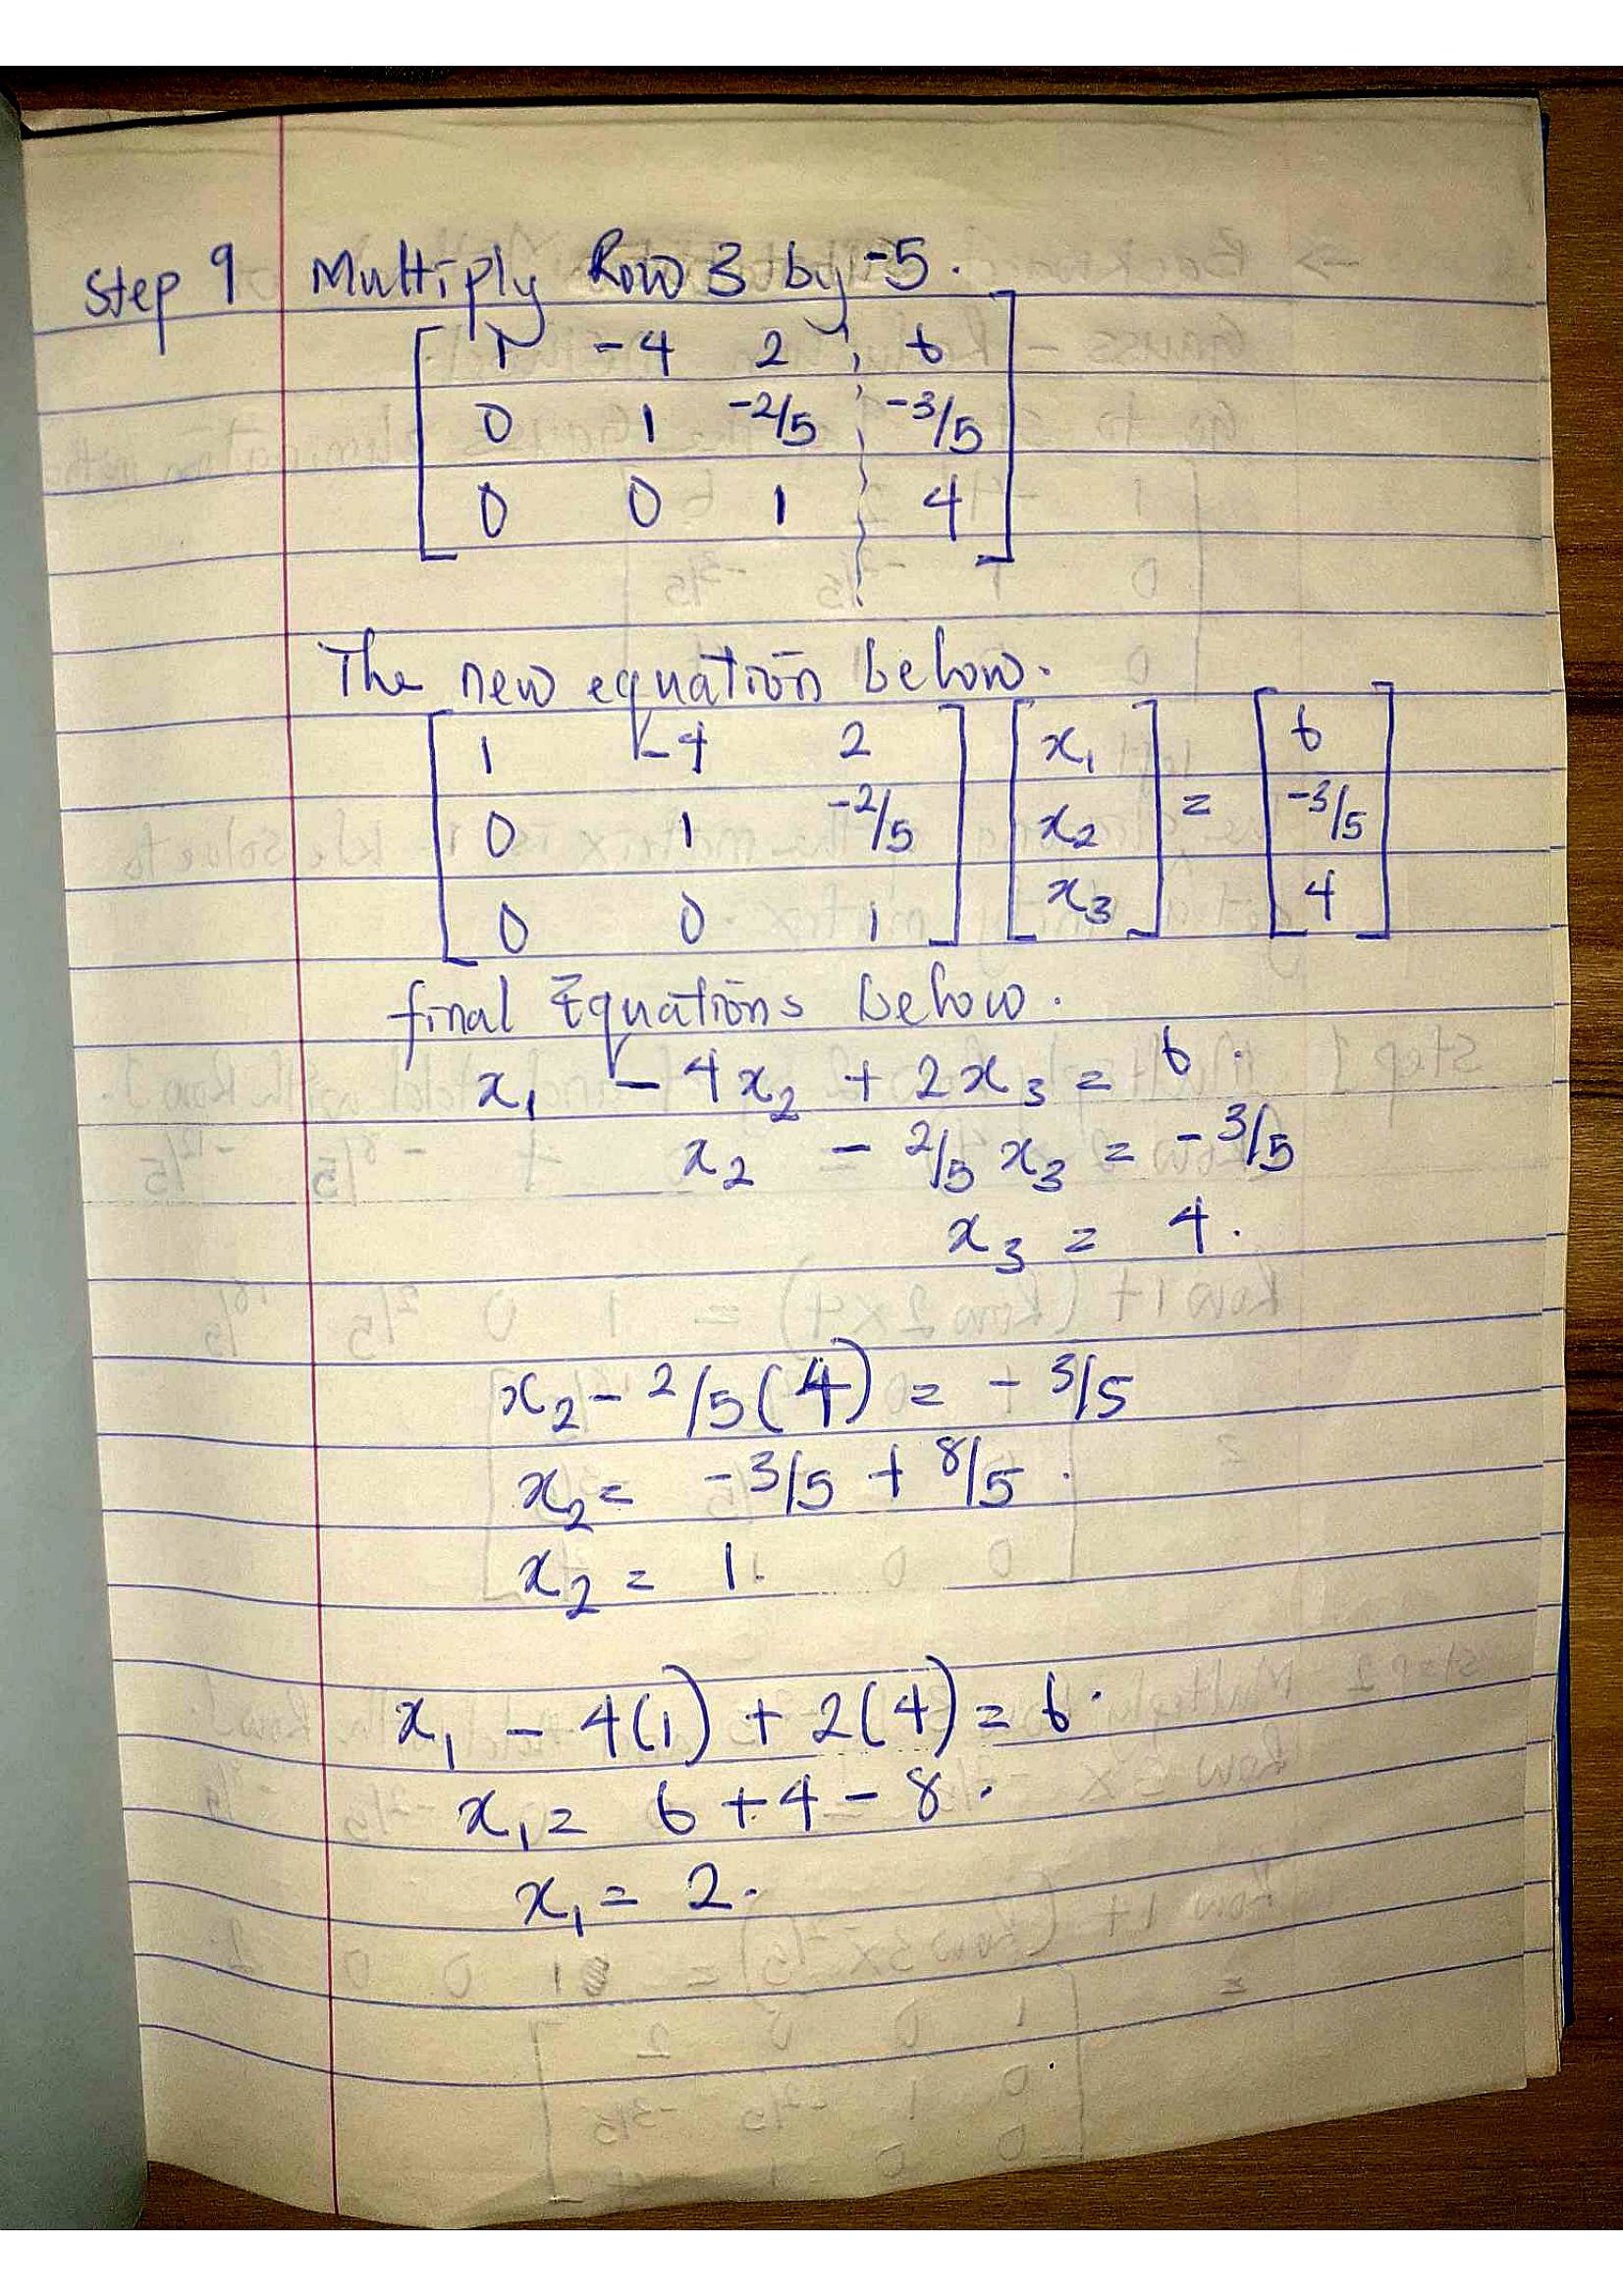 Step 9 Multiply Row 3 by -5.
1 -4 2 6
0 1 -2/5 -3/5
0 0 1 4
The new equation below.
1 -4 2 x₁ 6
0 1 -2/5 x₂ = -3/5
0 0 1 x₃ 4
final Equations below.
x₁ - 4x₂ + 2x₃ = 6.
x₂ - 2/5 x₃ = -3/5
x₃ = 4.
x₂ - 2/5(4) = -3/5
x₂ = -3/5 + 8/5.
x₂ = 1.
x₁ - 4(1) + 2(4) = 6.
x₁ = 6 + 4 - 8.
x₁ = 2.